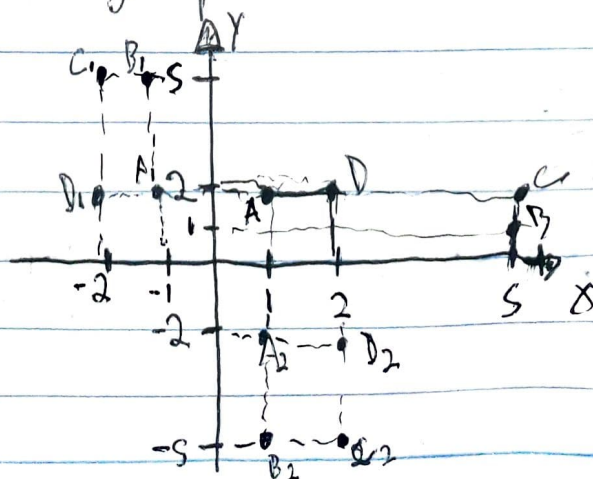 Y
C1 B1 5
D1 A1 2 A D C
1 B
-2 -1 1 2 5 X
-2 A2 D2
-5 B2 C2